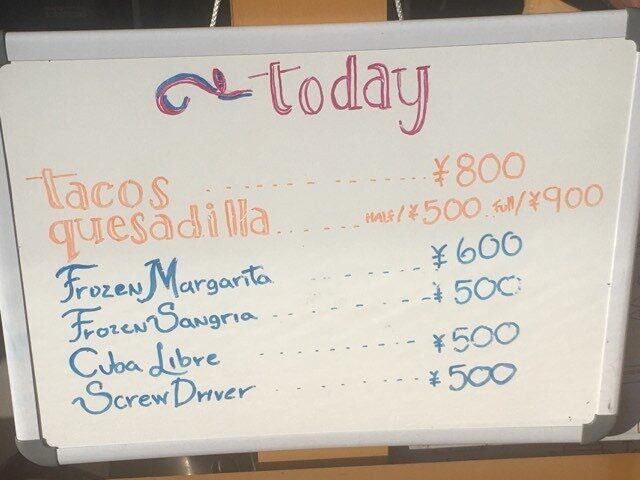 today
tacos ............... ¥800
quesadilla ...... HALF/¥500..Full/¥900
Frozen Margarita ........ ¥600
Frozen Sangria .......... ¥500
Cuba Libre .......... ¥500
Screw Driver .......... ¥500